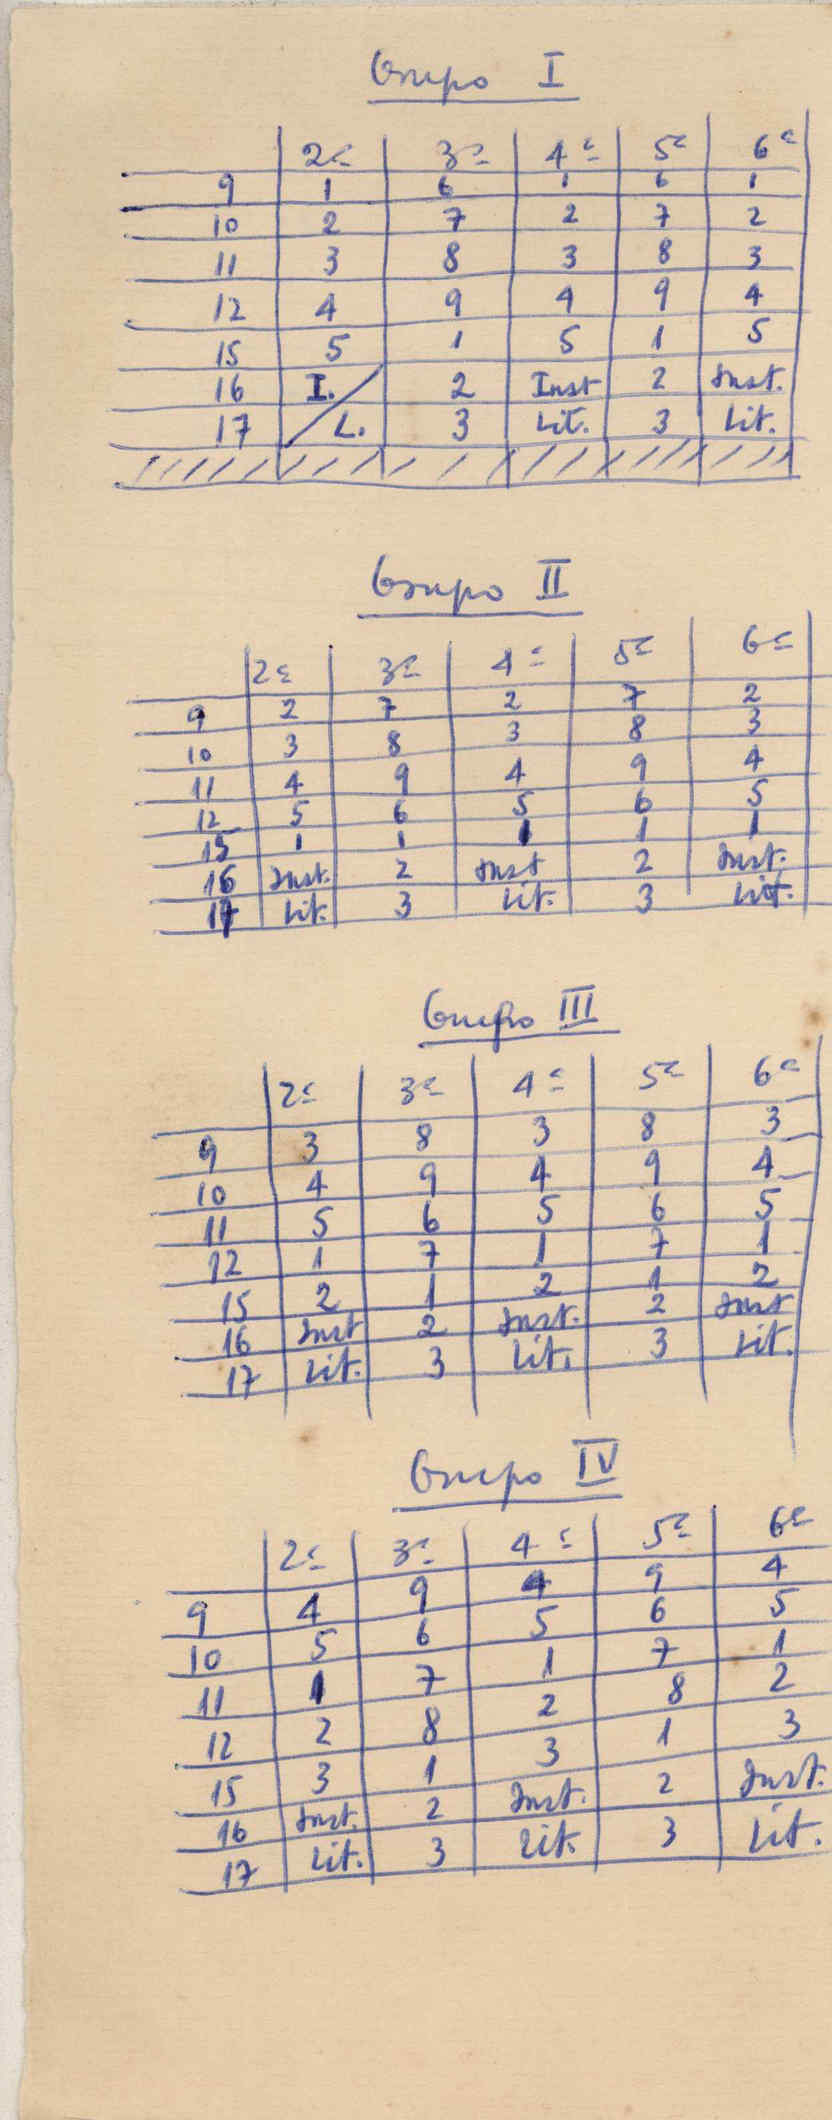 Grupo I
2ª 3ª 4ª 5ª 6ª
9 1 6 1 6 1
10 2 7 2 7 2
11 3 8 3 8 3
12 4 9 4 9 4
15 5 1 5 1 5
16 I. 2 Inst 2 Inst.
17 L. 3 Lit. 3 Lit.
Grupo II
2ª 3ª 4ª 5ª 6ª
9 2 7 2 7 2
10 3 8 3 8 3
11 4 9 4 9 4
12 5 6 5 6 5
15 1 1 1 1 1
16 Inst. 2 Inst 2 Inst.
17 Lit. 3 Lit. 3 Lit.
Grupo III
2ª 3ª 4ª 5ª 6ª
9 3 8 3 8 3
10 4 9 4 9 4
11 5 6 5 6 5
12 1 7 1 7 1
15 2 1 2 1 2
16 Inst 2 Inst. 2 Inst
17 Lit. 3 Lit. 3 Lit.
Grupo IV
2ª 3ª 4ª 5ª 6ª
9 4 9 4 9 4
10 5 6 5 6 5
11 1 7 1 7 1
12 2 8 2 8 2
15 3 1 3 1 3
16 Inst. 2 Inst. 2 Inst.
17 Lit. 3 Lit. 3 Lit.